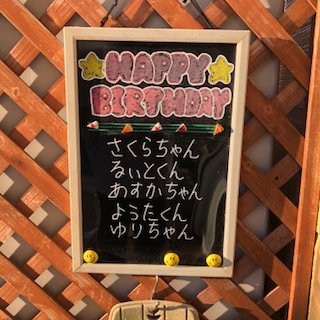 HAPPY
BIRTHDAY
さくらちゃん
るいとくん
あすかちゃん
ようたくん
ゆりちゃん